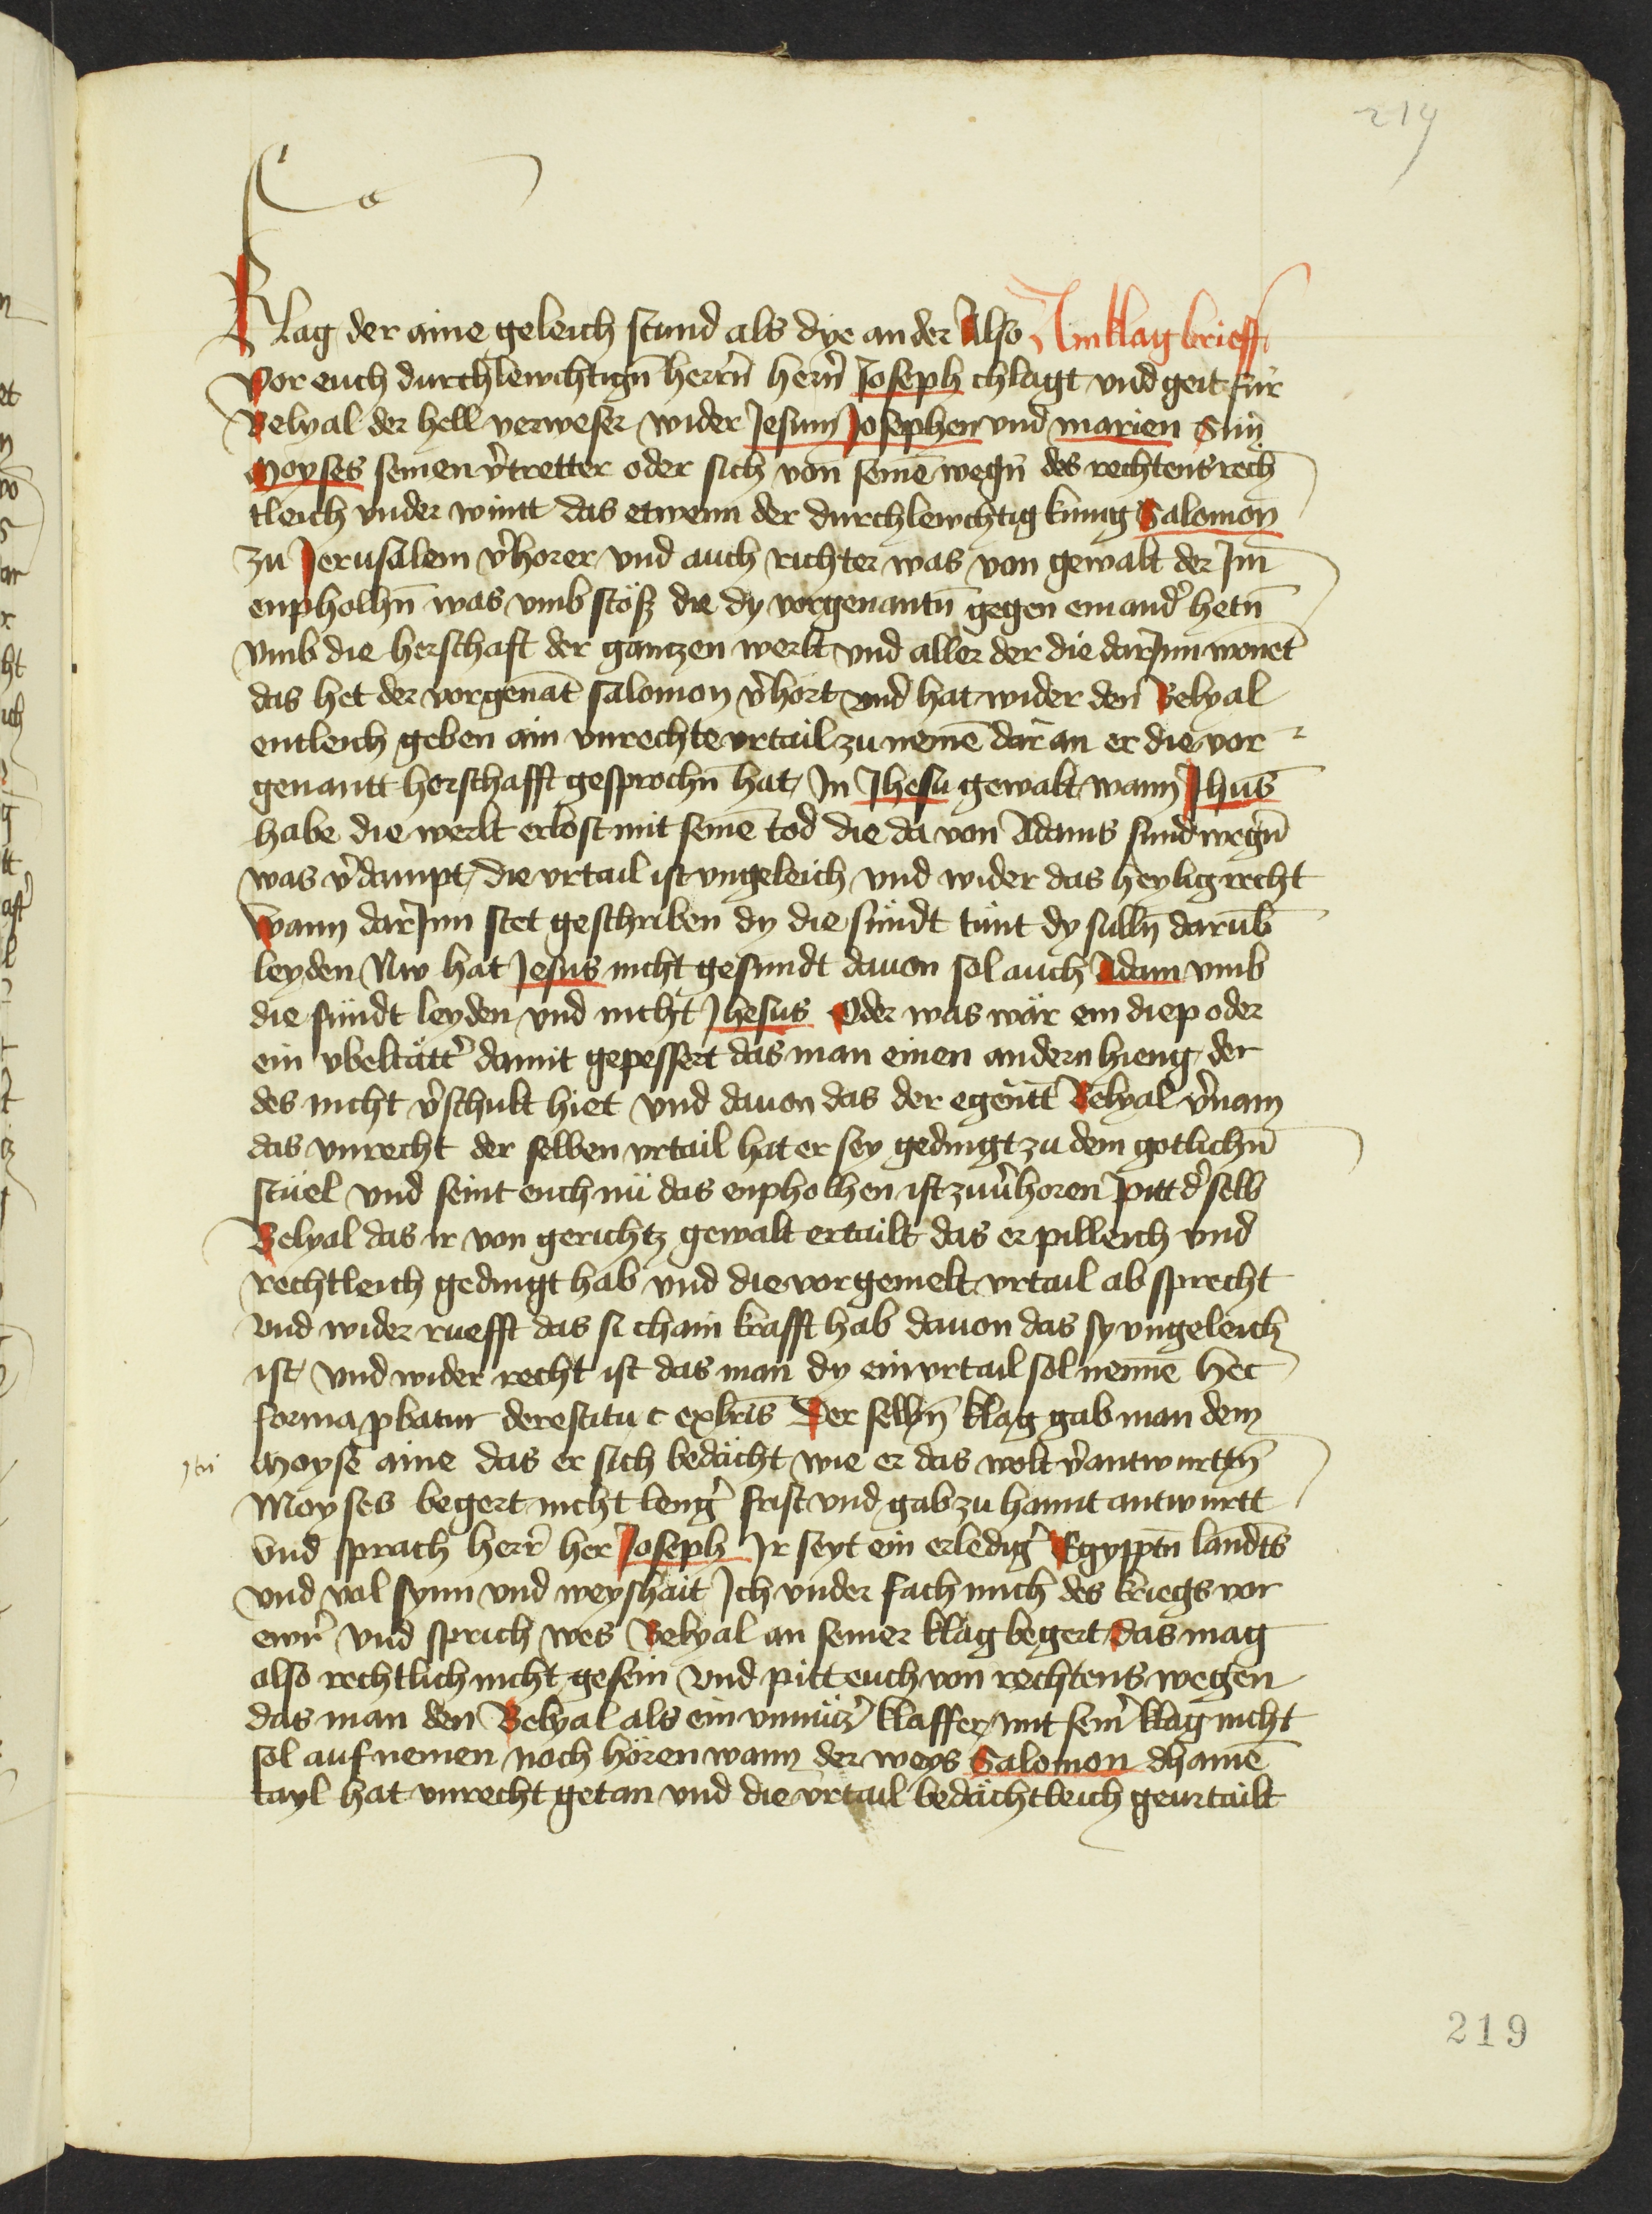 219
Klag der aine geleich stund als dye ander Also Ain klag brieff
Vor euch durchlewchtigñ herrñ herñ Joseph chlagt vnd geit für
Belyal der hell verweser wider Jesum Josephen vnd marien Sun
Moyses seinen v̉tretter oder sich von seinē wegñ des rechtens rech
tleich vnder wintt das etwenn der durchlewchtig kunig Salomon
zu Jerusalem v̉horer vnd auch richter was von gewalt der Jm̄
enpholhñ was vmb stöß die dy vorgenantñ gegen einand̉ hetñ
vmb die herschaft der gantzen werlt vnd aller der die darJnn wonēt
das het der vorgenāt salomon v̉hort vnd hat wider den Belyal
entleich geben ain vnrechte vrtail zu nemē dar an er die vor
genantt herschafft gesprochñ hat Jn Jhesu gewalt wann Jhūs
habe die werlt erlost mit seinē tod die da von Adams sund wegñ
was v̉dampt die vrtail ist vngeleich vnd wider das heylig recht
wann darJnn stet geschriben dy die sündt tünt dy sullñ darūb
leyden Nw hat Jesus nicht gesundt dauon sol auch Adam vmb
die sündt leyden vnd nicht Jhesus Oder was wär ein diep oder
ein vbeltätt̉ damit gepessert das man einen andern hieng der
des nicht v̉schult hiet vnd dauon das der egēñtt Belyal v̉nam
das vnrecht der selben vrtail hat er sey gedingt zu dem gotlichñ
stuel vnd seint euch nü das enpholhen ist zuu̇̉horen Pitt d̉ selb
Belyal das ir von gerichtz gewalt ertailt das er pilleich vnd
rechtleich gedingt hab vnd die vorgemelt vrtail ab sprecht
vnd wider ruefft das si chain krafft hab dauon das sy vngeleich
ist vnd wider recht ist das man dy ein vrtail sol nennē hec
forma ꝓbatur de restitu c exbris Der selbñ klag gab man dem
Moysē aine das er sich bedächt wie er das wolt v̉antwurttñ
Moyses begert nicht leng̉ frist vnd gab zu hannt antwurtt
vnd sprach herr̉ her Joseph Jr seyt ein erledig̉ Egypptñ landts
vnd vol synn vnd weyshait Jch vnder fach mich des kriegs vor
ewr̉ vnd sprich wes Belyal an seiner klag begert das mag
also rechtlich nicht gesein vnd pitt euch von rechtens wegen
das man den Belyal als ein vnnütz̉ klaffer mit sein̉ klag nicht
sol auf nemen noch hören wann der weys Salomon dhainē
tayl hat vnrecht getan vnd die vrtail bedächtleich geurtailt
219